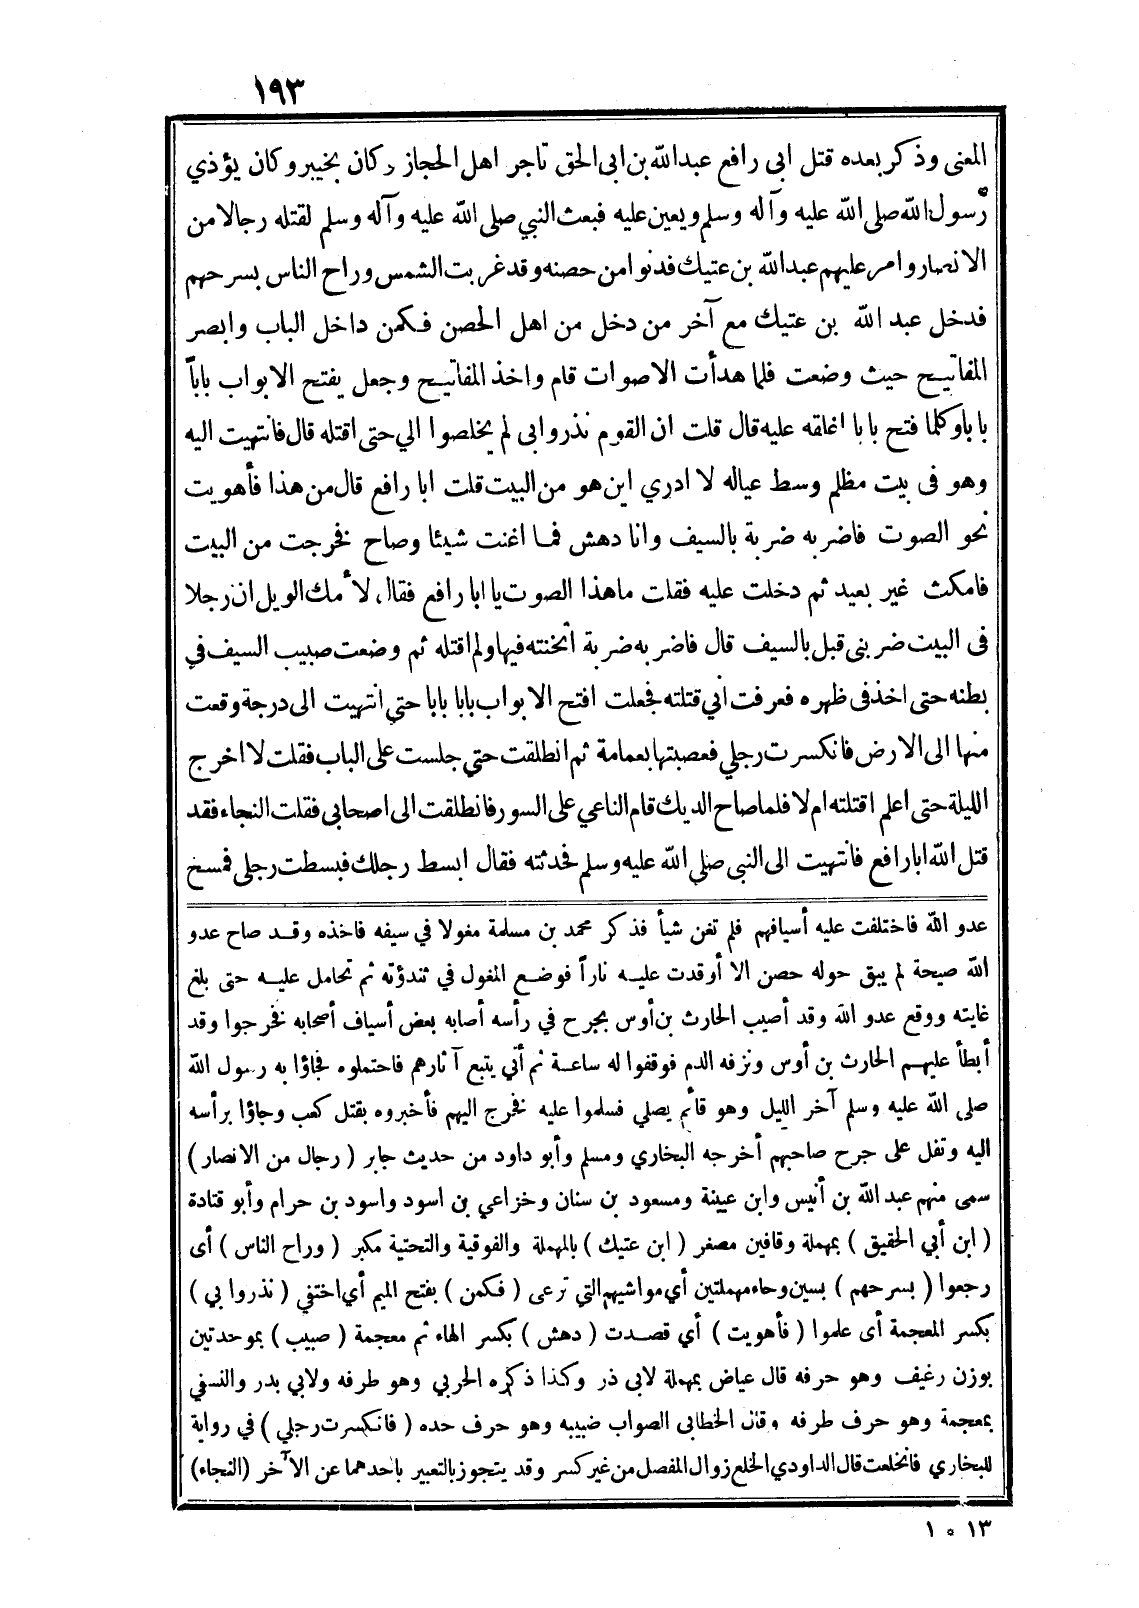 ١٩٣
المعنى وذكر بعده قتل ابى رافع عبدالله بن ابى الحق تاجر اهل الحجاز وكان بخيبر وكان يؤذي
رسول الله صلى الله عليه وآله وسلم ويعين عليه فبعث النبي صلى الله عليه وآله وسلم لقتله رجالا من
الانصار وامر عليهم عبدالله بن عتيك فدنوا من حصنه وقد غربت الشمس وراح الناس بسرحهم
فدخل عبد الله بن عتيك مع آخر من دخل من اهل الحصن فكمن داخل الباب وابصر
المفاتيح حيث وضعت فلما هدأت الاصوات قام واخذ المفاتيح وجعل يفتح الابواب باباً
باباوكلما فتح بابا اغلقه عليه قال قلت ان القوم نذروابى لم يخلصوا الي حتى اقتله قال فانتهيت اليه
وهو فى بيت مظلم وسط عياله لا ادري اين هو من البيت قلت ابا رافع قال من هذا فأهويت
نحو الصوت فاضربه ضربة بالسيف وانا دهش فما اغنت شيئا وصاح فخرجت من البيت
فامكث غير بعيد ثم دخلت عليه فقلت ماهذا الصوت يا ابا رافع فقال لأمك الويل ان رجلا
فى البيت ضربنى قبل بالسيف قال فاضربه ضربة أثخنته فيها ولم اقتله ثم وضعت صبيب السيف في
بطنه حتى اخذ فى ظهره فعرفت أني قتلته فجعلت افتح الابواب بابا بابا حتى انتهيت الى درجة وقعت
منها الى الارض فانكسرت رجلي فعصبتها بعمامة ثم انطلقت حتى جلست على الباب فقلت لا اخرج
الليلة حتى اعلم اقتلته ام لا فلما صاح الديك قام الناعي على السور فانطلقت الى اصحابى فقلت النجاء فقد
قتل الله ابا رافع فانتهيت الى النبي صلي الله عليه وسلم فحدثته فقال ابسط رجلك فبسطت رجلى فمسح
عدو الله فاختلفت عليه أسيافهم فلم تغن شيأ فذكر محمد بن مسلمة مغولا في سيفه فاخذه وقد صاح عدو
الله صيحة لم يبق حوله حصن الا أوقدت عليه ناراً فوضع المغول في ثندؤته ثم تحامل عليه حتى بلغ
غايته ووقع عدو الله وقد أصيب الحارث بن أوس بجرح في رأسه أصابه بعض أسياف أصحابه فخرجوا وقد
أبطأ عليهم الحارث بن أوس ونزفه الدم فوقفوا له ساعة ثم أتي يتبع آثارهم فاحتملوه فجاؤا به رسول الله
صلى الله عليه وسلم آخر الليل وهو قائم يصلي فسلموا عليه فخرج اليهم فأخبروه بقتل كعب وجاؤا برأسه
اليه وتفل على جرح صاحبهم أخرجه البخاري ومسلم وأبو داود من حديث جابر ( رجال من الانصار )
سمى منهم عبد الله بن أنيس وابن عيينة ومسعود بن سنان وخزاعي بن اسود واسود بن حرام وأبو قتادة
( ابن أبي الحقيق ) بمهملة وقافين مصغر ( ابن عتيك ) بالمهملة والفوقية والتحتية مكبر ( وراح الناس ) أى
رجعوا ( بسرحهم ) بسين وحاء مهملتين أي مواشيهم التي ترعى ( فكمن ) بفتح الميم أي اختفي ( نذروا بي )
بكسر المعجمة أى علموا ( فأهويت ) أي قصدت ( دهش ) بكسر الهاء ثم معجمة ( صبيب ) بموحدتين
بوزن رغيف وهو حرفه قال عياض بمهملة لابى ذر وكذا ذكره الحربي وهو طرفه ولابي بدر والنسفي
بمعجمة وهو حرف طرفه وقال الخطابى الصواب ضبيبه وهو حرف حده ( فانكسرت رجلي ) في رواية
للبخاري فانخلعت قال الداودي الخلع زوال المفصل من غير كسر وقد يتجوز بالتعبير باحدهما عن الآخر (النجاء)
١٣ * ١